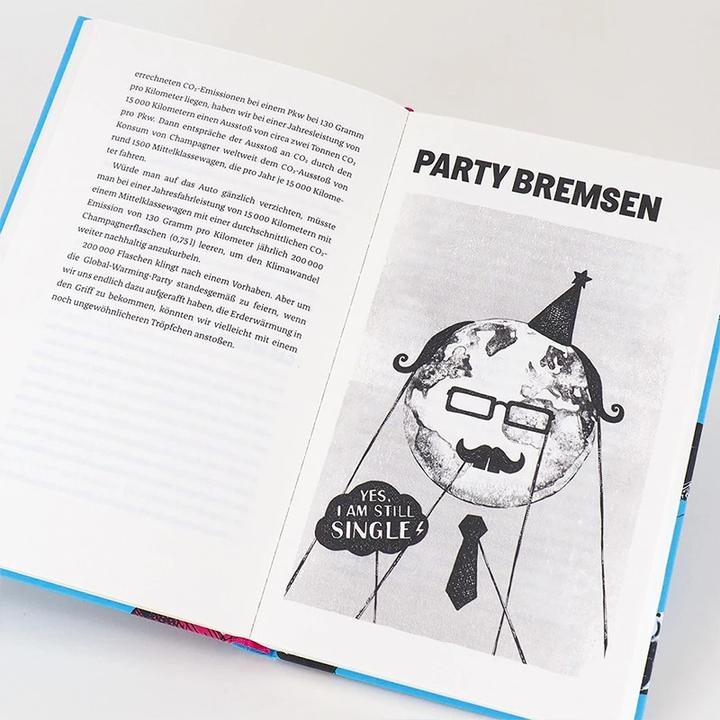 errechneten CO₂-Emissionen bei einem Pkw bei 130 Gramm
pro Kilometer liegen, haben wir bei einer Jahresleistung von
15 000 Kilometern einen Ausstoß von circa zwei Tonnen CO₂
pro Pkw. Dann entspräche der Ausstoß an CO₂ durch den
Konsum von Champagner weltweit dem CO₂-Ausstoß von
rund 1500 Mittelklassewagen, die pro Jahr je 15 000 Kilome-
ter fahren.
Würde man auf das Auto gänzlich verzichten, müsste
man bei einer Jahresfahrleistung von 15 000 Kilometern mit
einem Mittelklassewagen mit einer durchschnittlichen CO₂-
Emission von 130 Gramm pro Kilometer jährlich 200 000
Champagnerflaschen (0,75 l) leeren, um den Klimawandel
weiter nachhaltig anzukurbeln.
200 000 Flaschen klingt nach einem Vorhaben. Aber um
die Global-Warming-Party standesgemäß zu feiern, wenn
wir uns endlich dazu aufgerafft haben, die Erderwärmung in
den Griff zu bekommen, könnten wir vielleicht mit einem
noch ungewöhnlicheren Tröpfchen anstoßen.
PARTY BREMSEN
YES,
I AM STILL
SINGLE